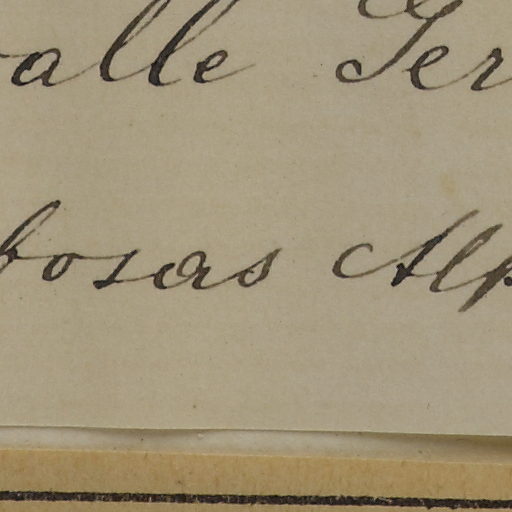 alle Ger
bosas Alp